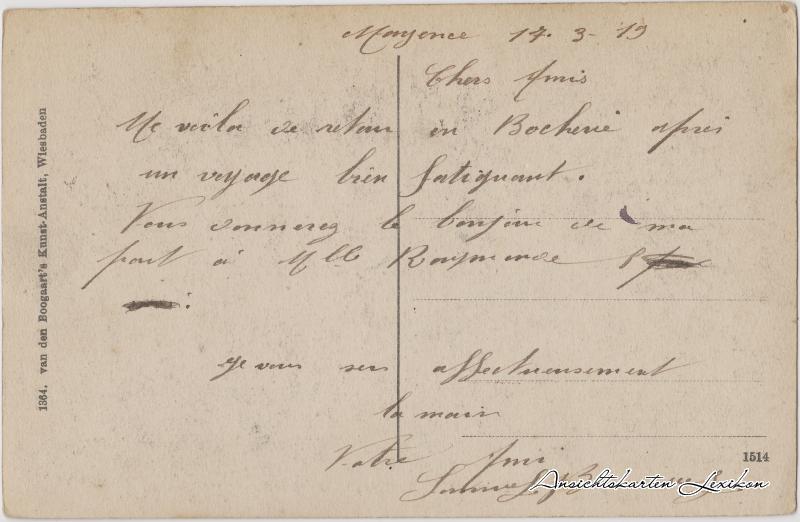 Mayence 17-3-19
Chers Amis
Me voila de retour en Bocherie apres
un voyage bien fatiguant.
Vous donnerez le bonjour de ma
part à Mlle Raymonde
Je vous serre affectueusement
la main
Votre Ami
1364. van den Boogaart's Kunst-Anstalt, Wiesbaden
1514
Ansichtskarten Lexikon